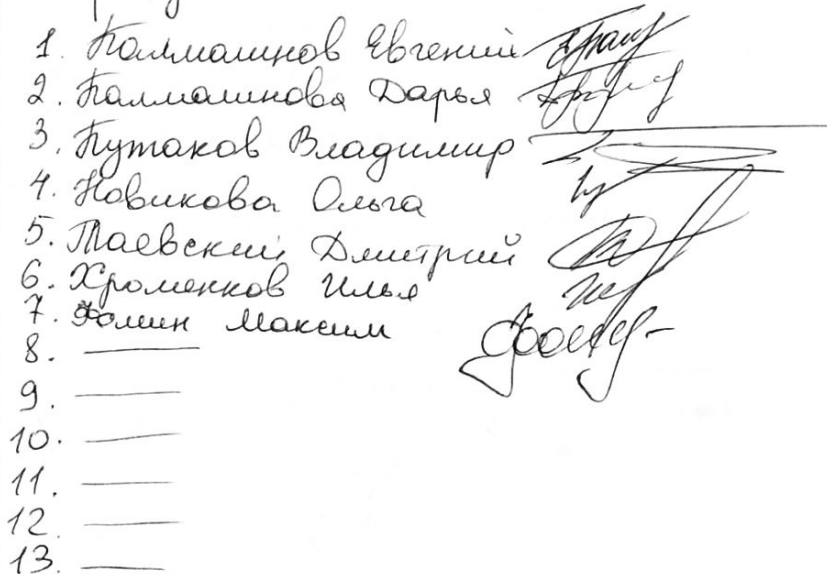 1. Калмашнов Евгений
2. Калмашнова Дарья
3. Кутаков Владимир
4. Новикова Ольга
5. Таевский Дмитрий
6. Хроменков Илья
7. Фомин Максим
8. —
9. —
10. —
11. —
12. —
13. —